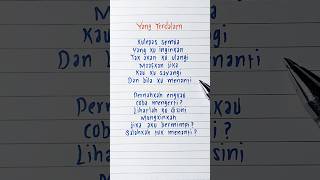 Yang Terdalam
Kulepas semua
Yang ku inginkan
Tak akan ku ulangi
Maafkan jika
Kau ku sayangi
Dan bila ku menanti
Pernahkah engkau
coba mengerti?
Lihatlah ku disini
Mungkinkah
jika aku bermimpi?
Salahkah tuk menanti?